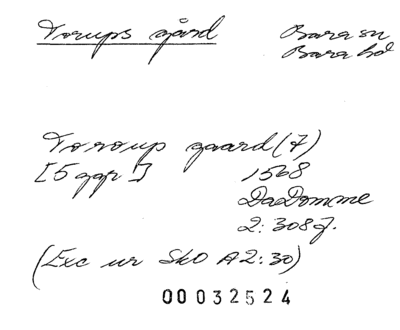 Torups gård
Bara sn
Bara hd
Toroup gaard (7)
[5 ggr]
1568
DaDomme
2: 308 f.
(Exc ur SkO A2:30)
00032524